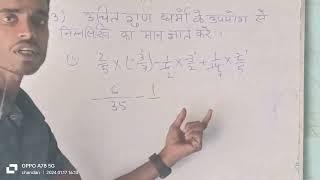 3) उचित गुण धर्मो के उपयोग से
निम्नलिखित का मान ज्ञात करें।
(i) 2/5 × (-3/7) - 1/2 × 3/2 + 1/14 × 2/5
6/35 - 1
OPPO A78 5G
chandan | 2024.01.17 16:13